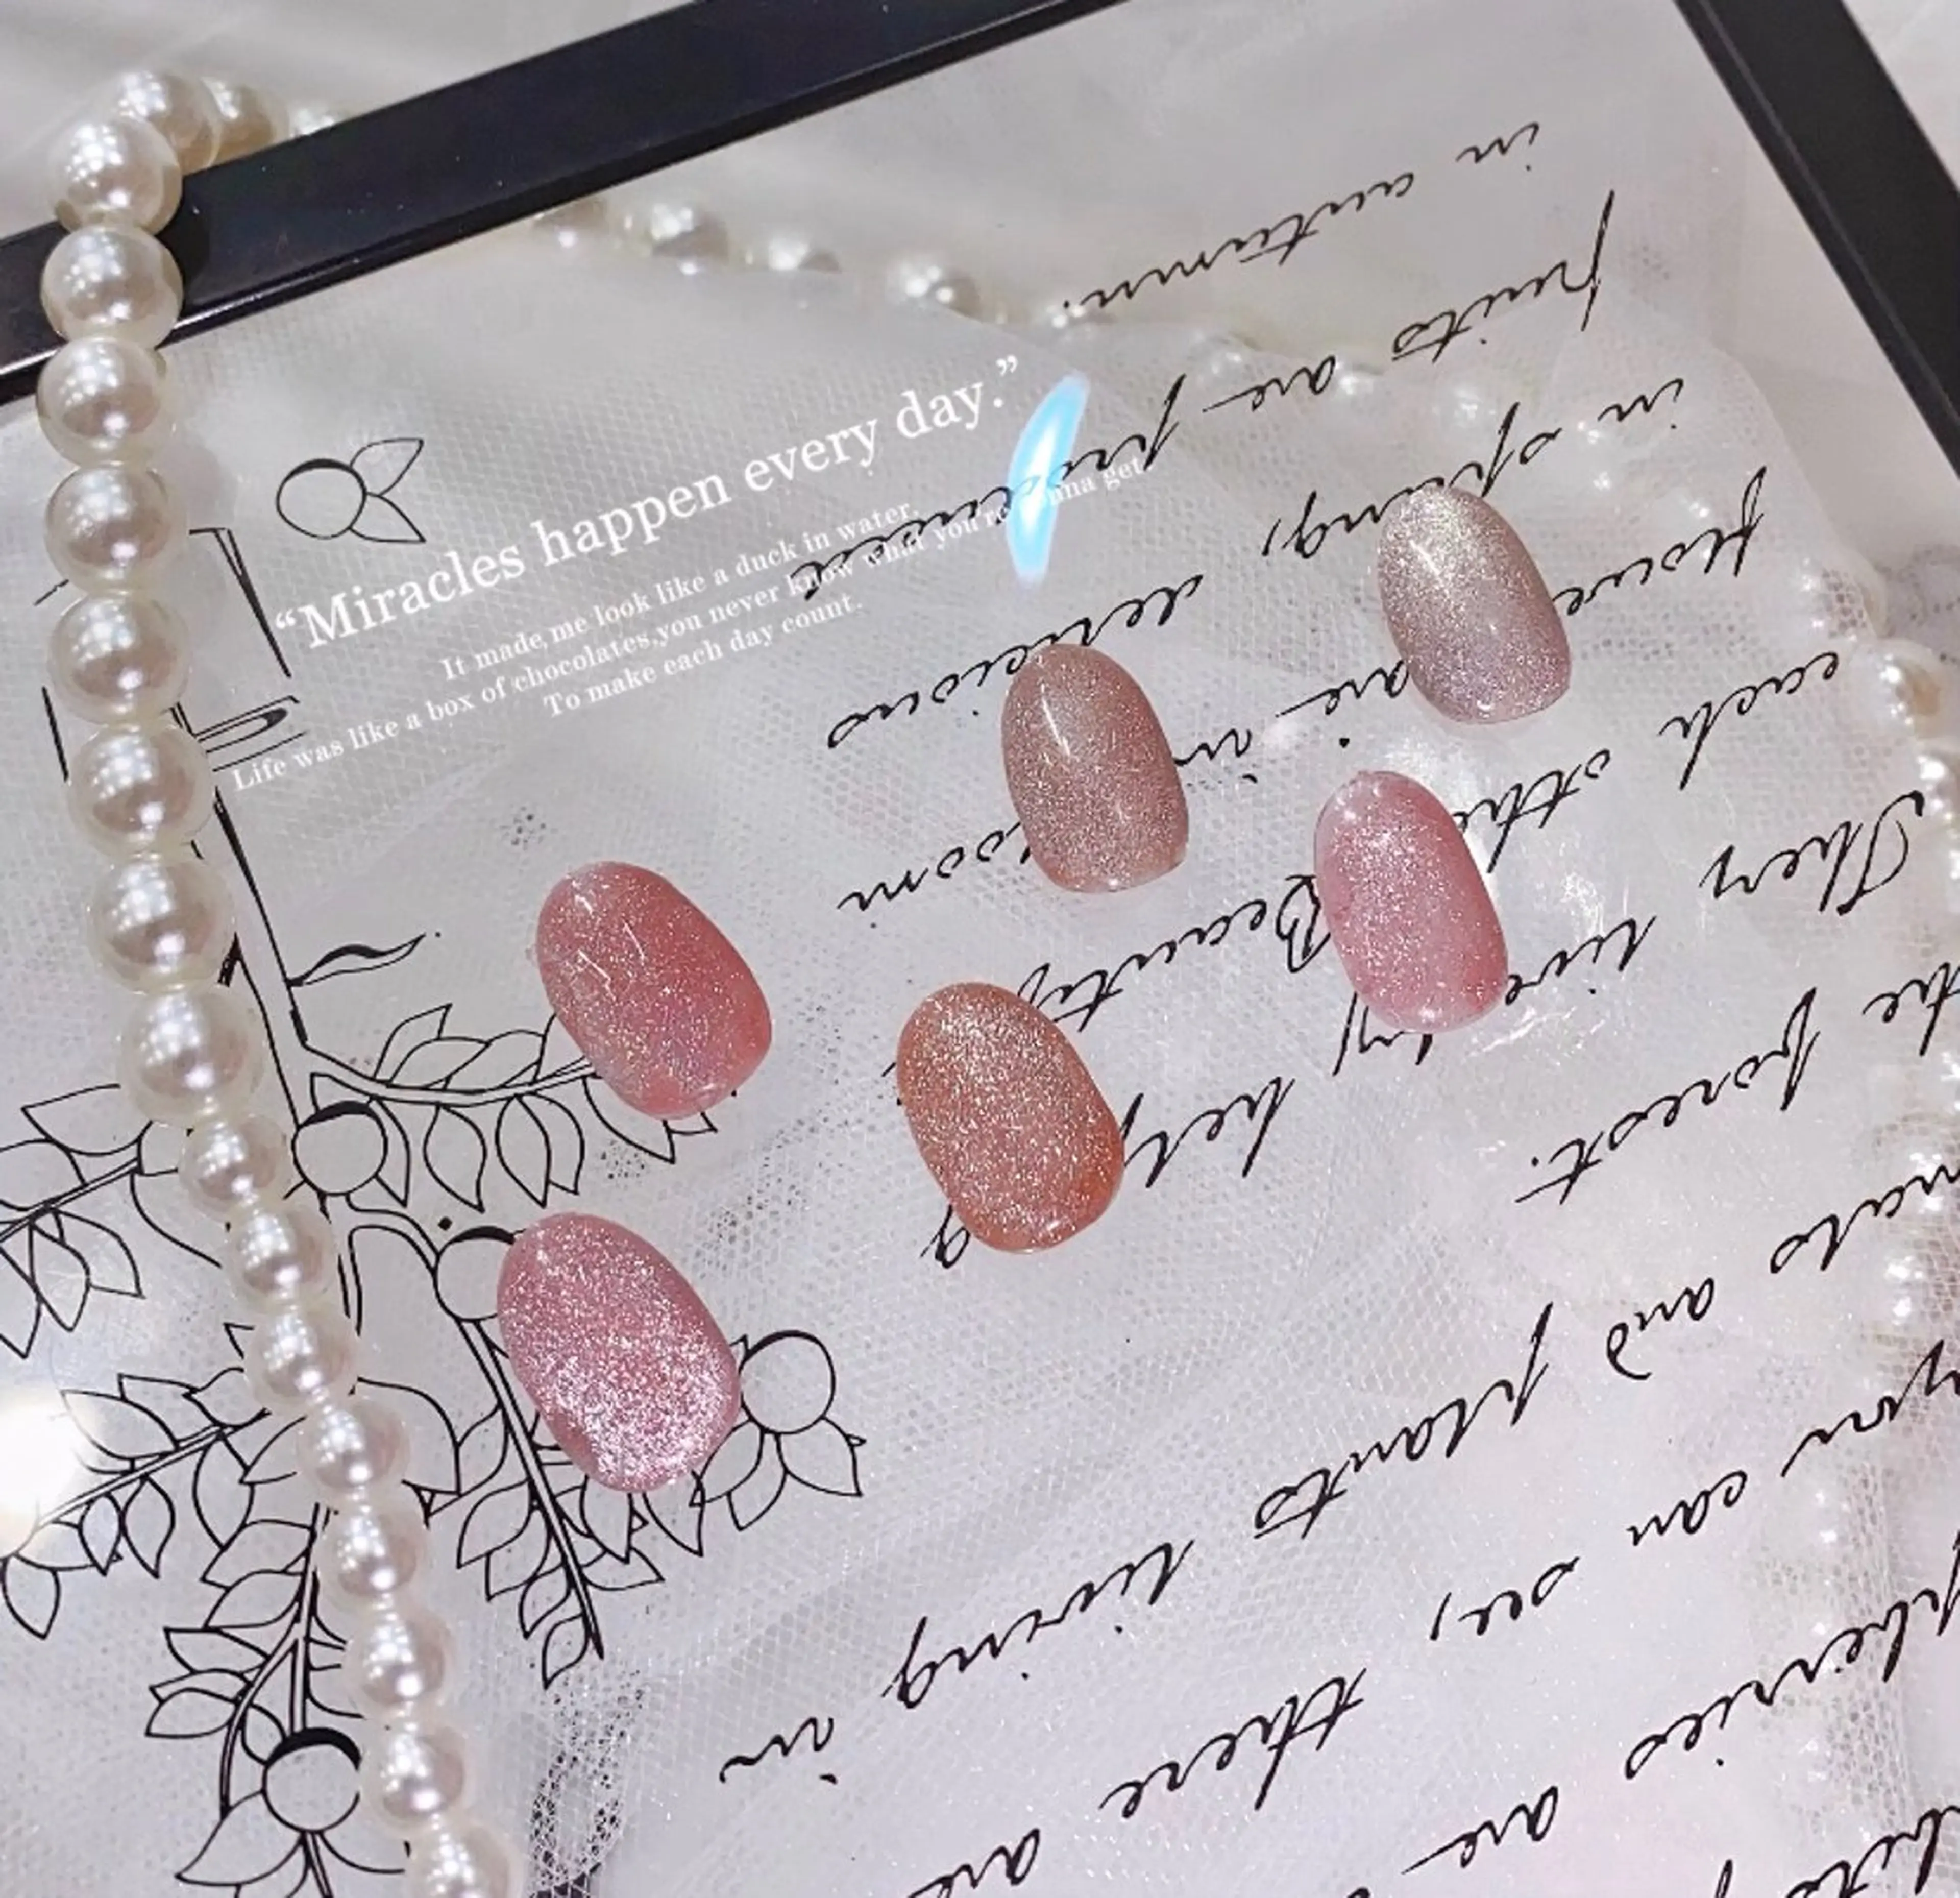 “Miracles happen every day.”
It made,me look like a duck in water,
Life was like a box of chocolates,you never know what you're gonna get
To make each day count.
are
you can see, there are
and plants living in
the forest.
They live by helping
each other. Beautiful
flowers are in bloom
in spring, delicious
fruits are produced
in autumn.